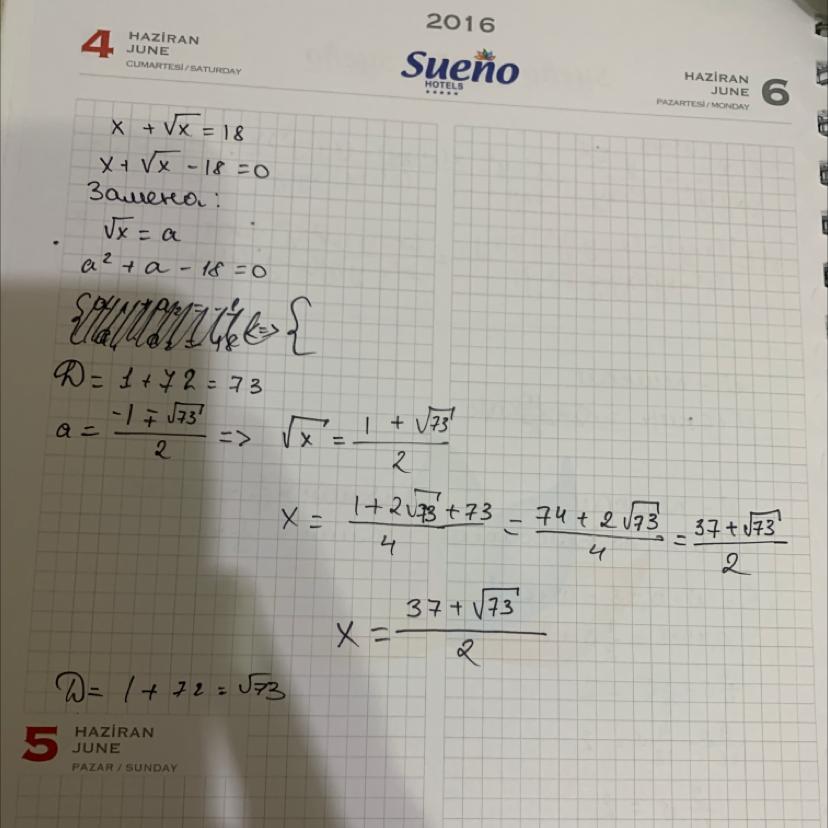 2016
4 HAZİRAN
JUNE
CUMARTESİ / SATURDAY
Sueno
HOTELS
HAZİRAN 6
JUNE
PAZARTESİ / MONDAY
x + √x = 18
x + √x - 18 = 0
Замена:
√x = a
a² + a - 18 = 0
D = 1 + 72 = 73
a = (-1 ∓ √73)/2 => √x = (1 + √73)/2
x = (1 + 2√73 + 73)/4 = (74 + 2√73)/4 = (37 + √73)/2
x = (37 + √73)/2
D = 1 + 72 = √73
5 HAZİRAN
JUNE
PAZAR / SUNDAY